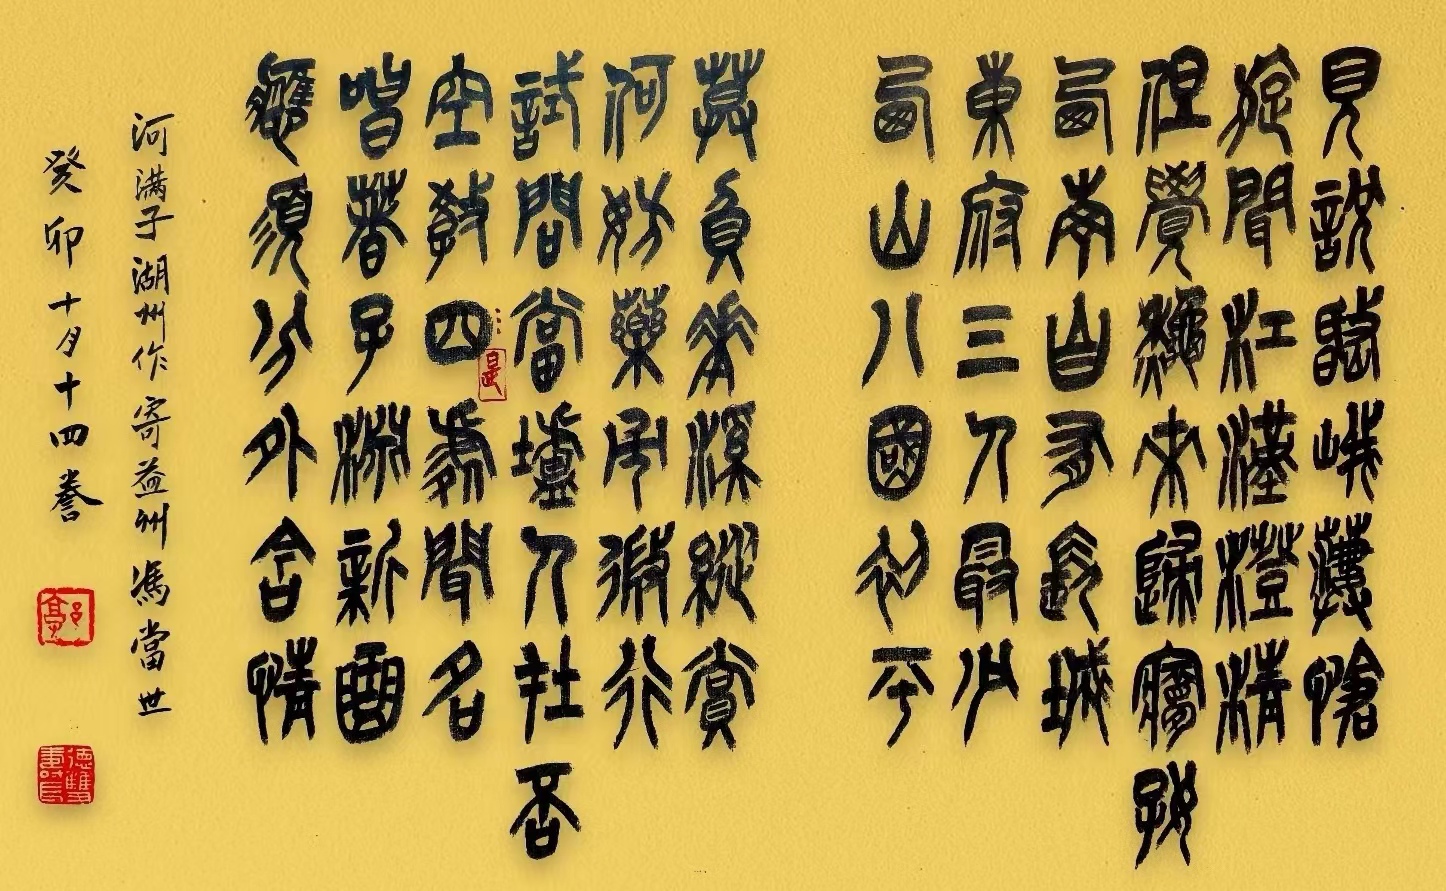 見說岷峨淒愴
旋聞江漢澄清
但覺秋來歸夢好
西南自有長城
東府三人最少
西山八國初平
莫負花溪縱賞
何妨藥市微行
試問當壚人在否
空教四處聞名
唱著子淵新曲
應須分外含情
河满子 湖州作 寄益州馮當世
癸卯十月十四誊
是